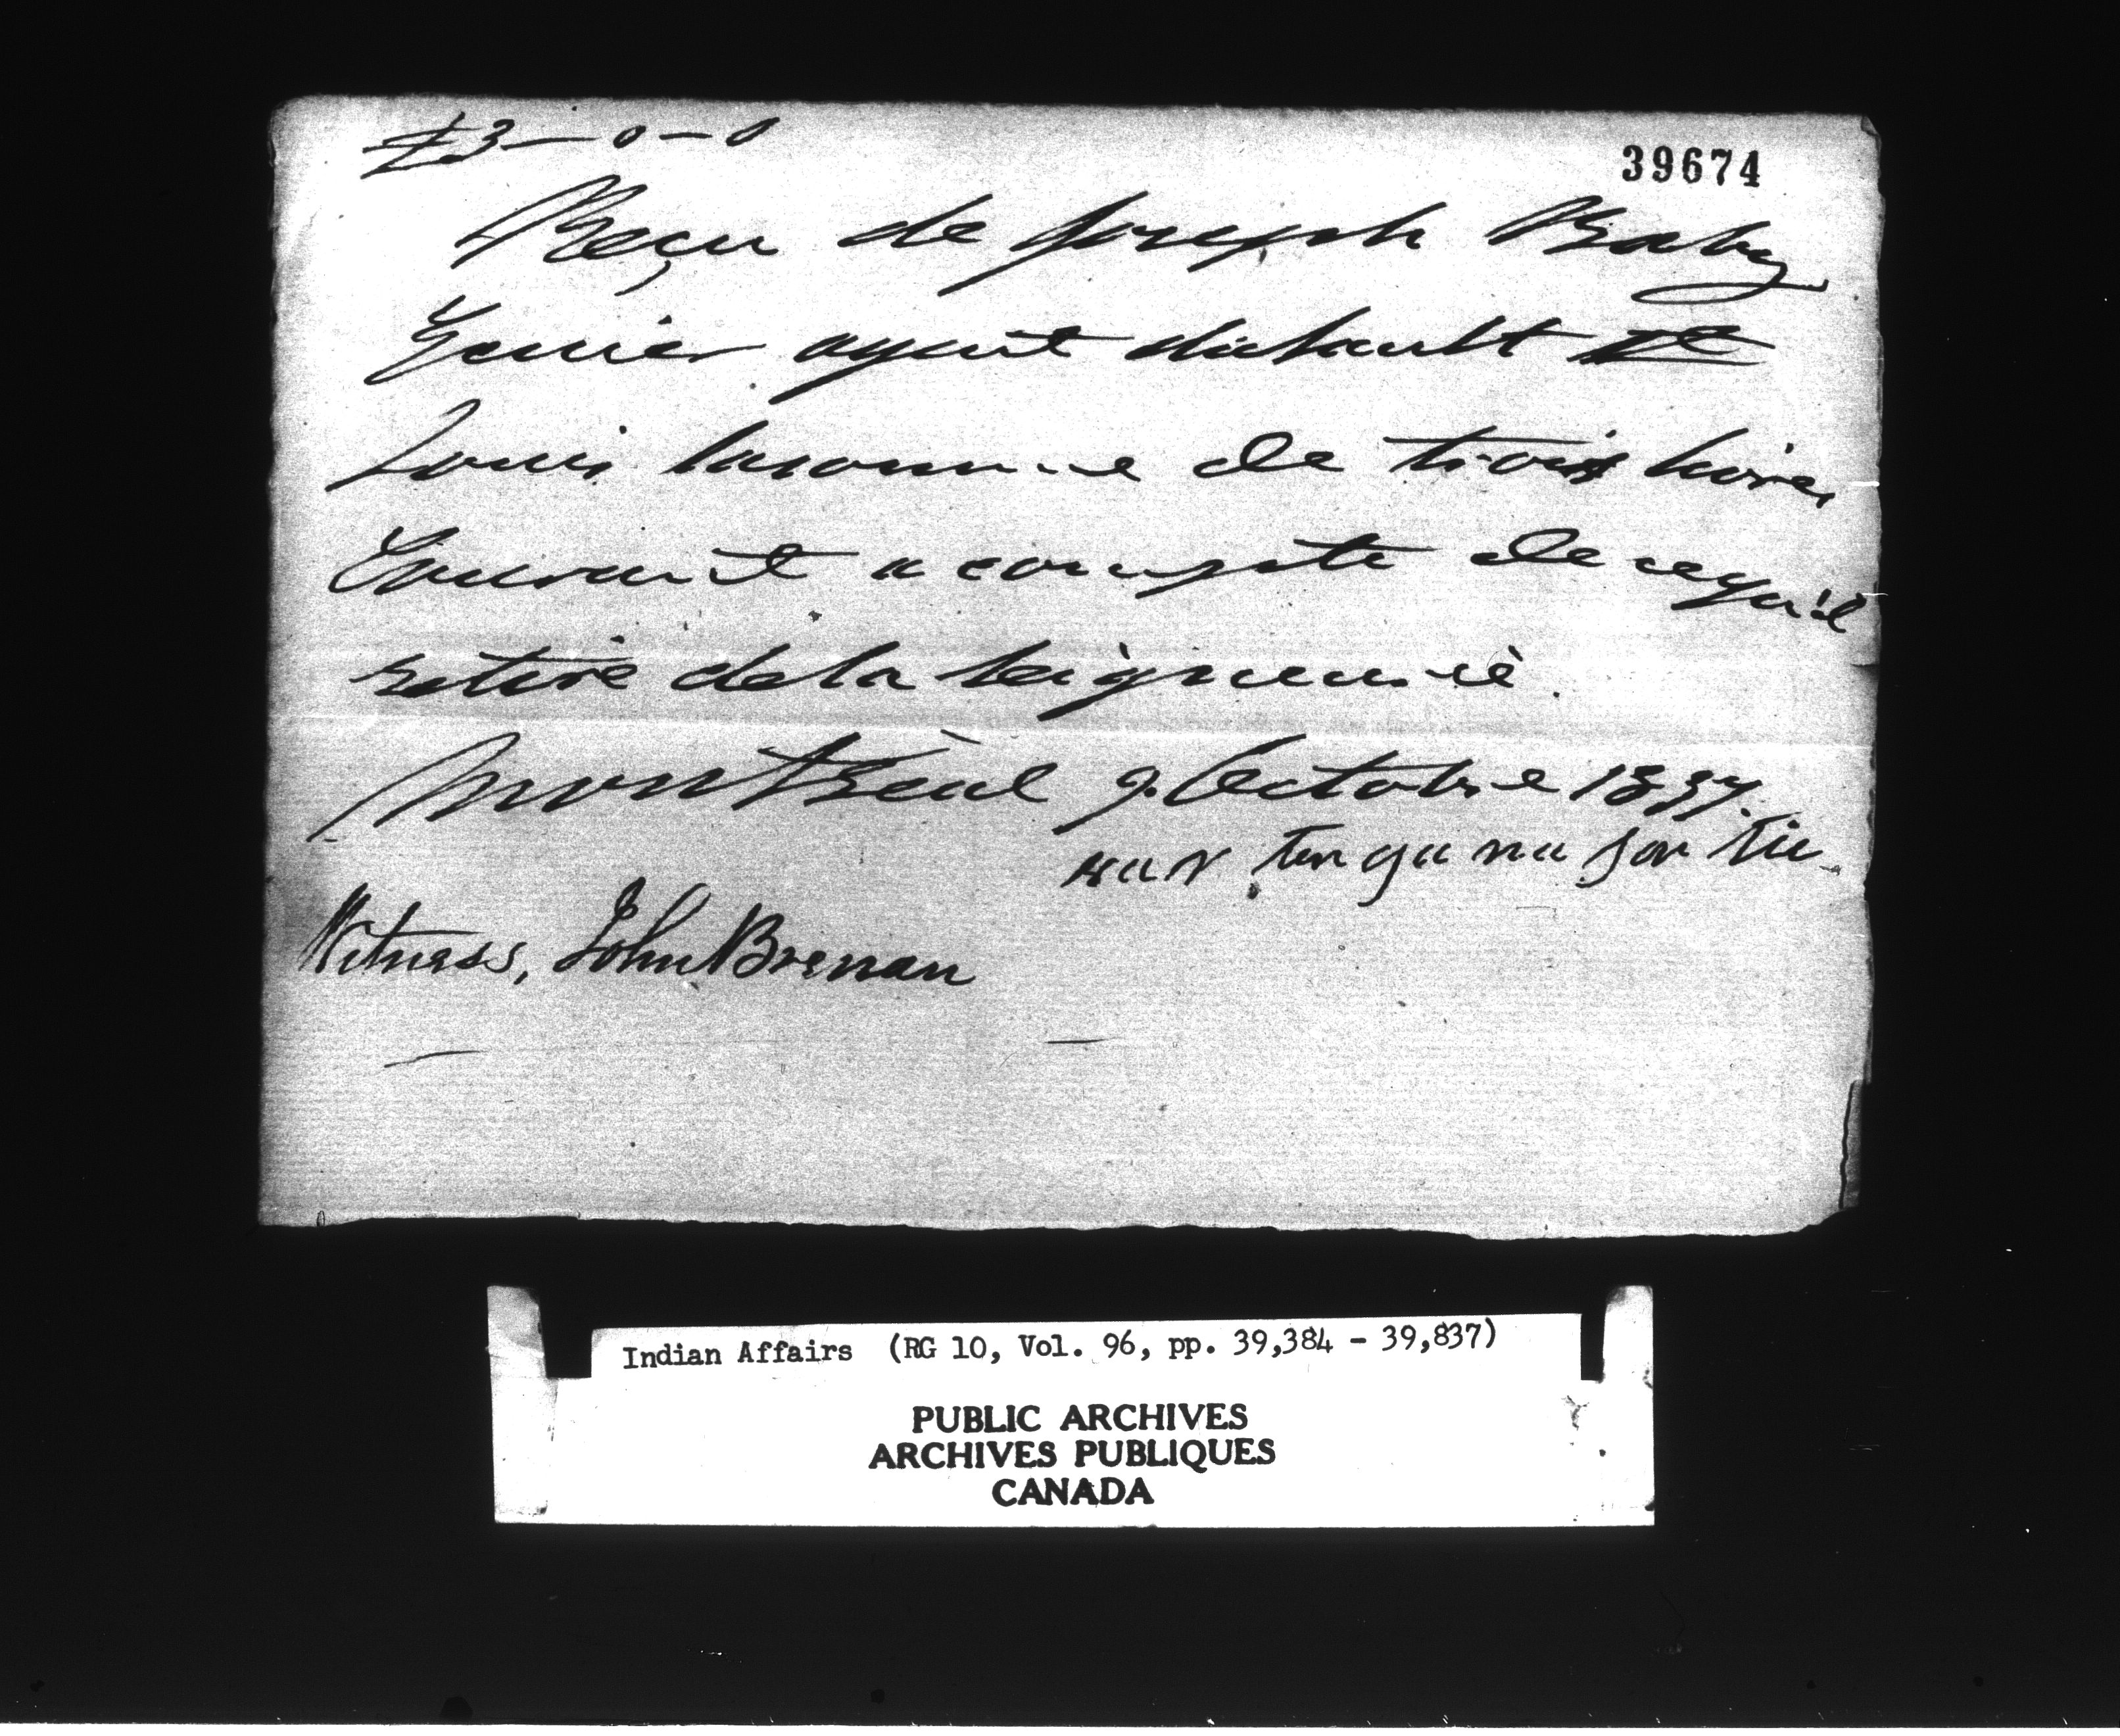 £3—0—0
39674
Reçu de Joseph Baby
Ecuier agent du Sault St
Louis la somme de trois livres
Courant a compte de ce qu'il
retire de la Seigneurie.
Montréal 9. Octobre 1837.
Witness, John Brenan
Indian Affairs (RG 10, Vol. 96, pp. 39,384 - 39,837)
PUBLIC ARCHIVES
ARCHIVES PUBLIQUES
CANADA